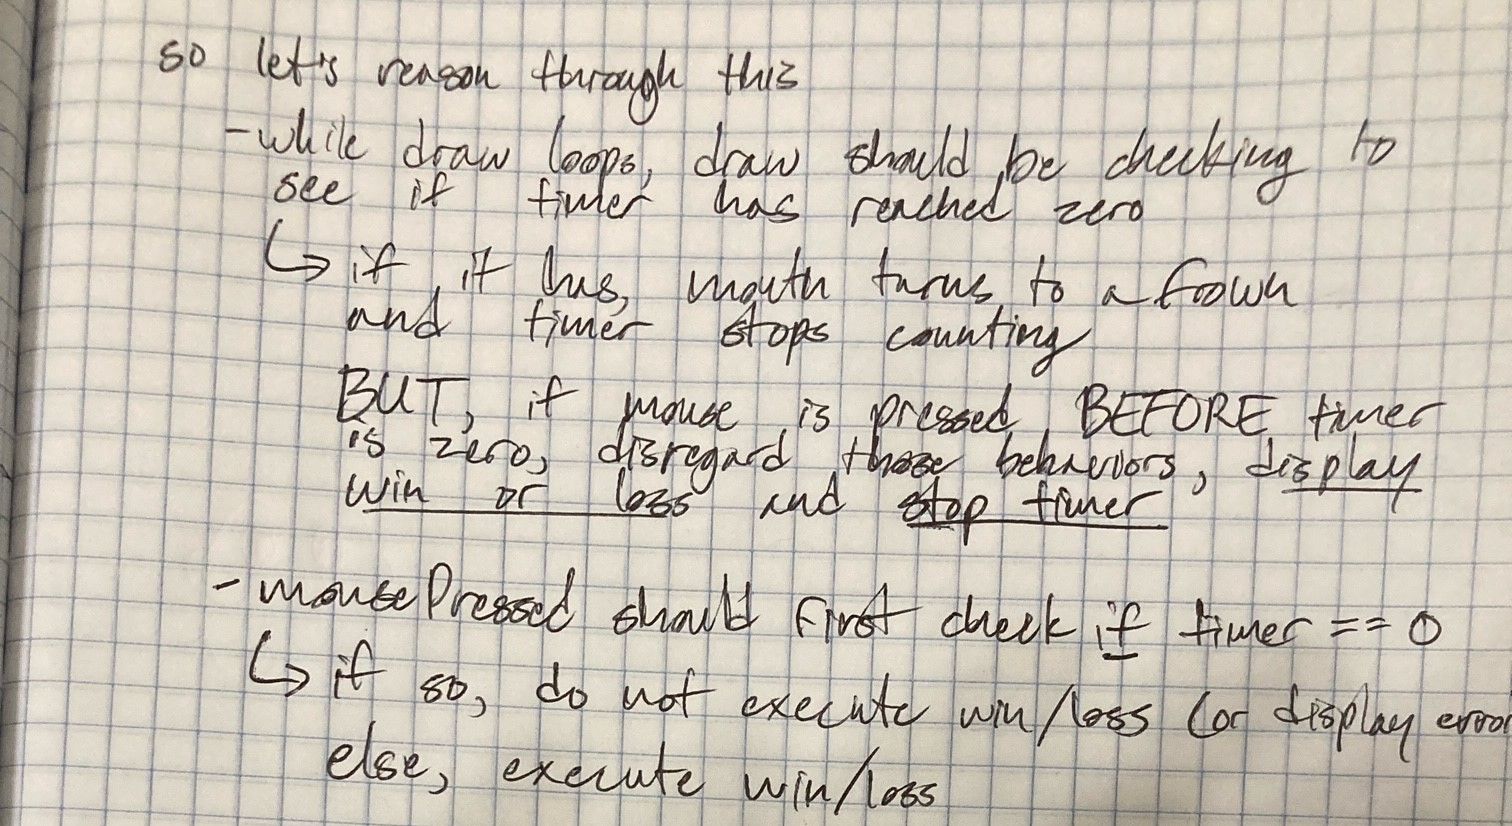 so let's reason through this
- while draw loops, draw should be checking to
see if timer has reached zero
↳ if it has, mouth turns to a frown
and timer stops counting
BUT, if mouse is pressed BEFORE timer
is zero, disregard those behaviors, display
win or loss and stop timer
- mousePressed should first check if timer == 0
↳ if so, do not execute win/loss (or display error
else, execute win/loss